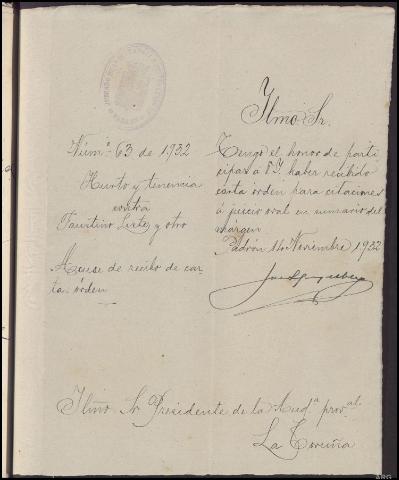 Núm.º 63 de 1932
Hurto y tenencia
contra
Faustino y otro
Acuse de recibo de car
ta-órden
Iltmo Sr.
Tengo el honor de parti
cipar a V.I. haber recibido
carta órden para citaciones
á juicio oral en sumario del
márgen
Padrón 14 Noviembre 1932
Iltmo Sr Presidente de la Aud.ª prov.al
La Coruña
ARG